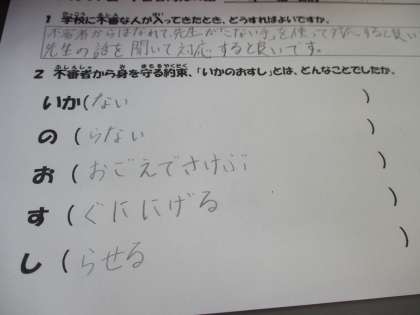 1 学校に不審な人が入ってきたとき、どうすればよいですか。
不審者からはなれて、先生が
を使って
すると良い
先生の話を聞いて対応すると良いです。
2 不審者から身を守る約束、「いかのおすし」とは、どんなことでしたか。
いか(ない )
の (らない )
お (おごえでさけぶ )
す (ぐににげる )
し (らせる )